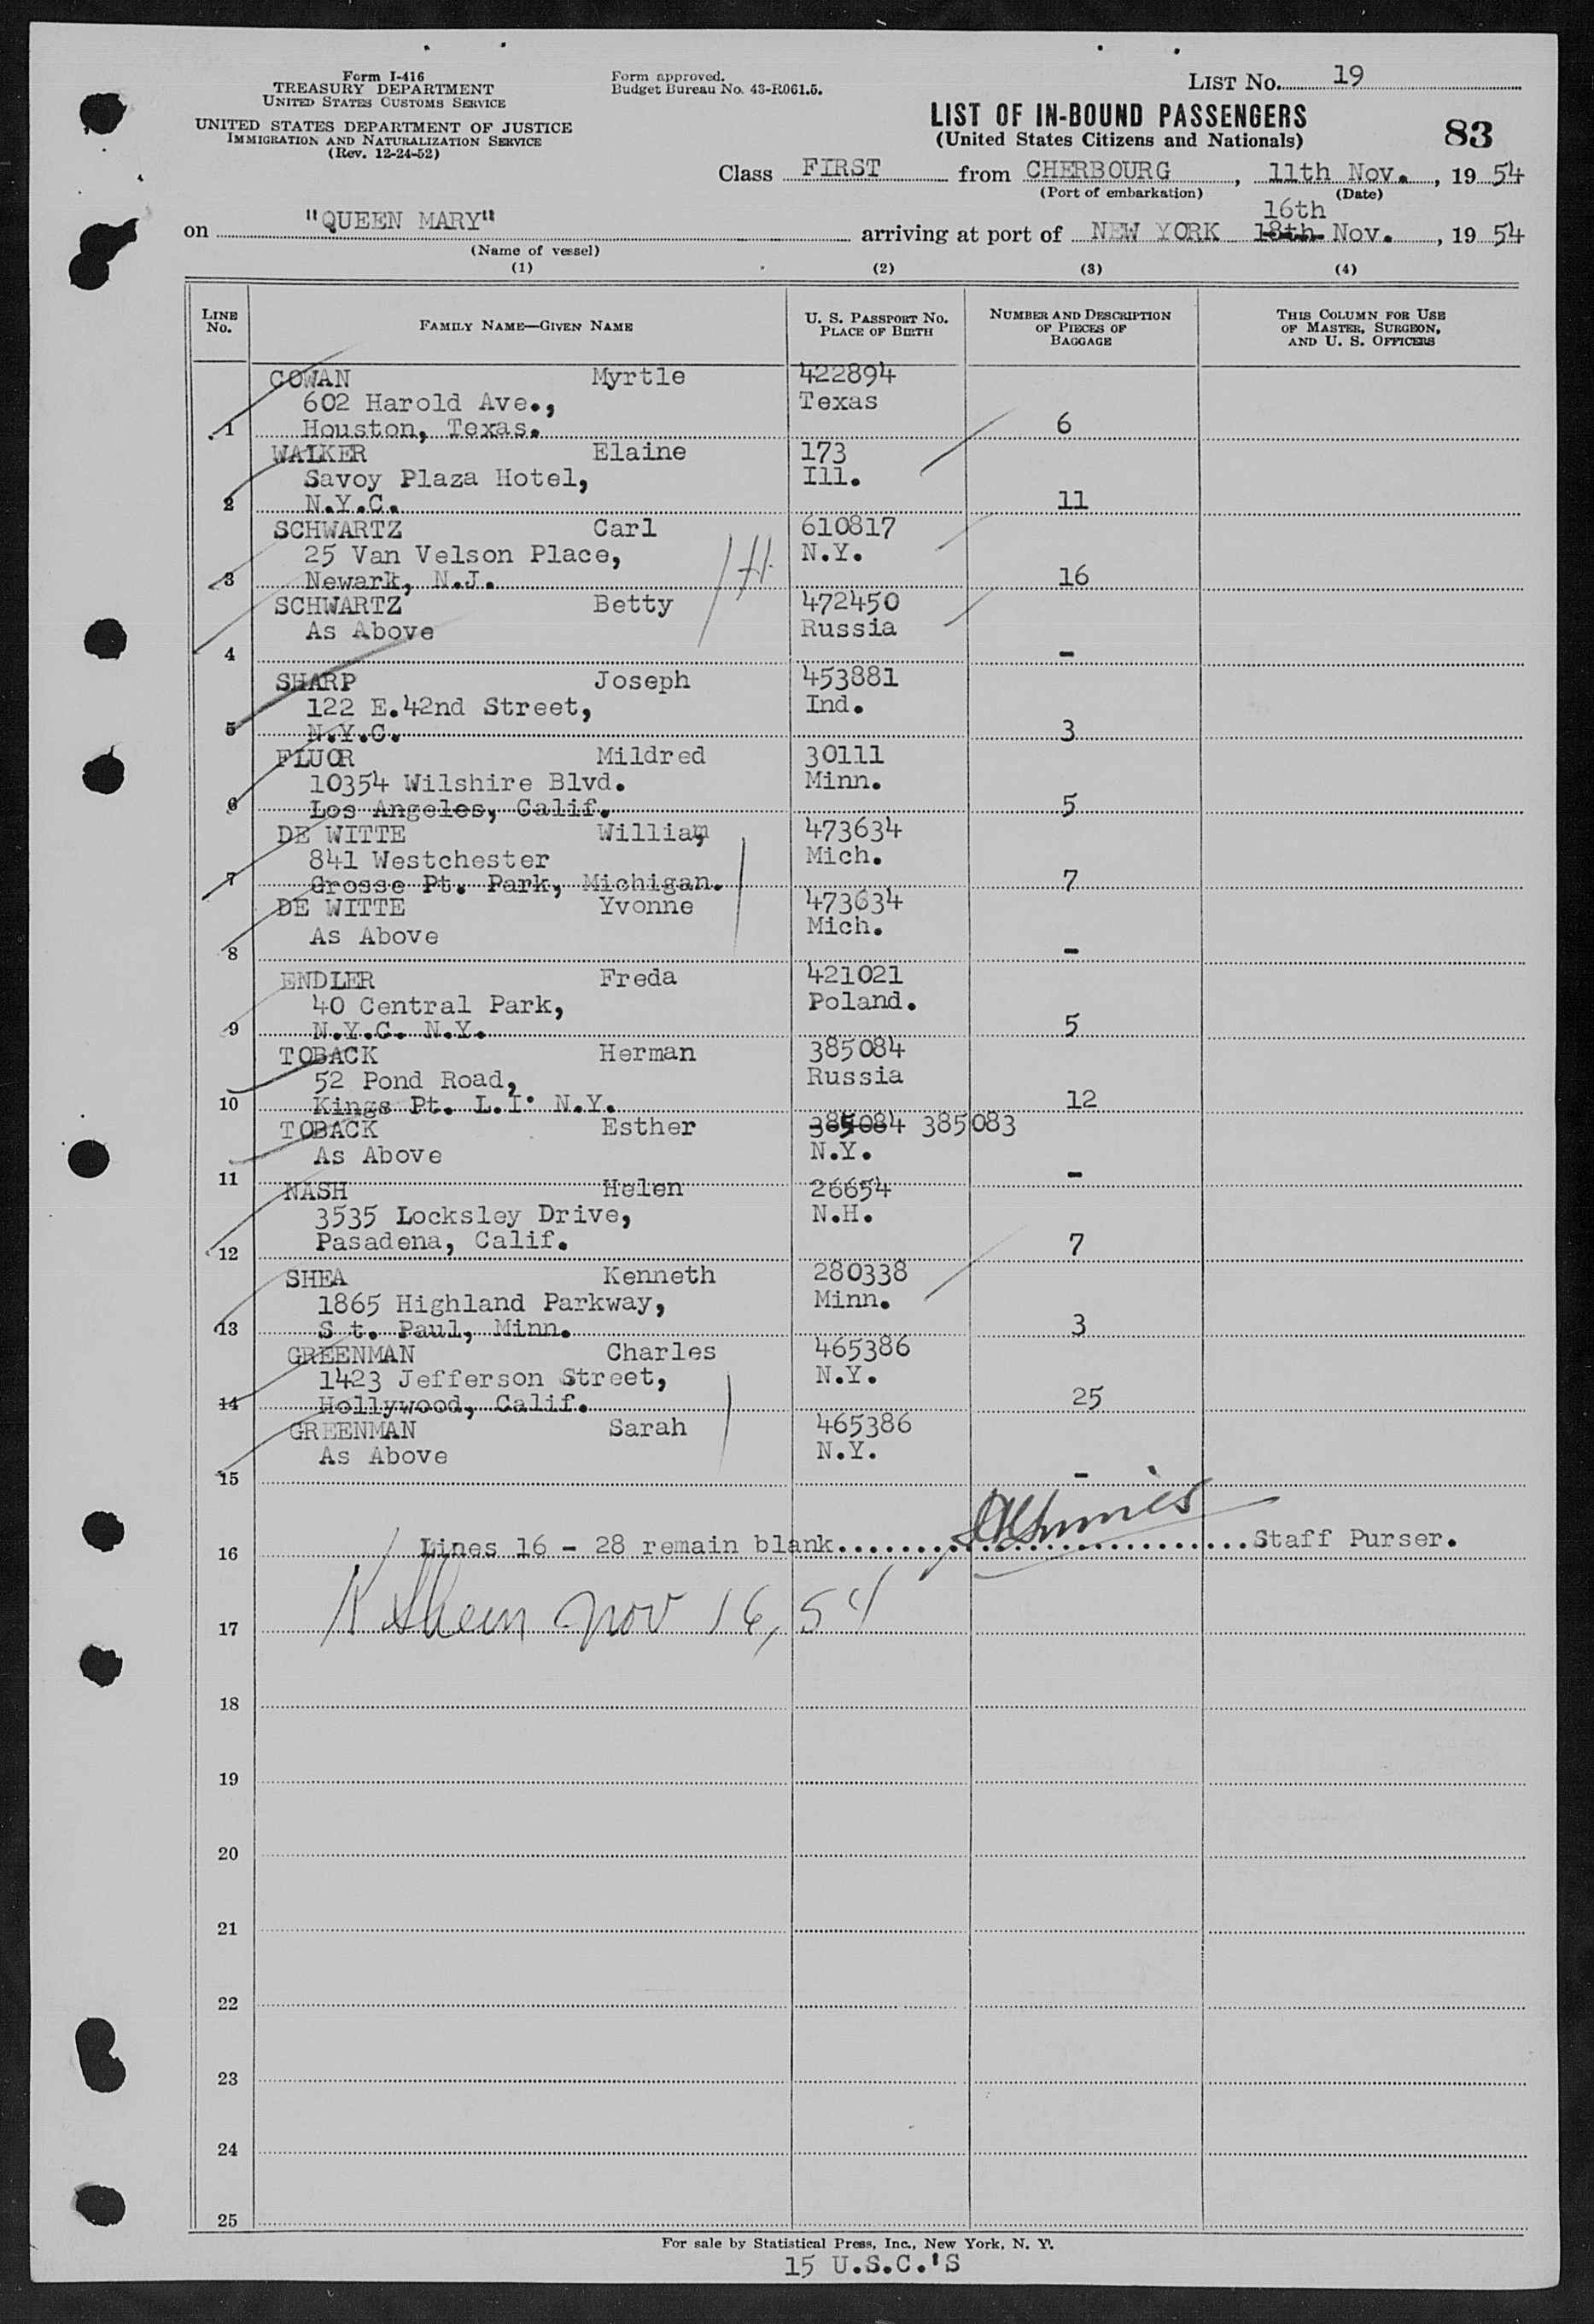 Form I-416
TREASURY DEPARTMENT
UNITED STATES CUSTOMS SERVICE
UNITED STATES DEPARTMENT OF JUSTICE
IMMIGRATION AND NATURALIZATION SERVICE
(Rev. 12-24-52)
Form approved.
Budget Bureau No. 43-R061.5.
LIST No. 19
LIST OF IN-BOUND PASSENGERS
(United States Citizens and Nationals)
83
Class FIRST from CHERBOURG, 11th Nov., 19 54
(Port of embarkation) (Date)
16th
on "QUEEN MARY" arriving at port of NEW YORK 18th Nov., 19 54
(Name of vessel)
(1) (2) (3) (4)
LINE No. FAMILY NAME—GIVEN NAME U. S. PASSPORT No. PLACE OF BIRTH NUMBER AND DESCRIPTION OF PIECES OF BAGGAGE THIS COLUMN FOR USE OF MASTER, SURGEON, AND U. S. OFFICERS
COWAN Myrtle 422894
602 Harold Ave., Texas
1 Houston, Texas. 6
WALKER Elaine 173
Savoy Plaza Hotel, Ill.
2 N.Y.C. 11
SCHWARTZ Carl 610817
25 Van Velson Place, N.Y.
3 Newark, N.J. 16
SCHWARTZ Betty 472450
As Above Russia
4 -
SHARP Joseph 453881
122 E.42nd Street, Ind.
5 N.Y.C. 3
FLUOR Mildred 30111
10354 Wilshire Blvd. Minn.
6 Los Angeles, Calif. 5
DE WITTE William 473634
841 Westchester Mich.
7 Grosse Pt. Park, Michigan. 7
DE WITTE Yvonne 473634
As Above Mich.
8 -
ENDLER Freda 421021
40 Central Park, Poland.
9 N.Y.C. N.Y. 5
TOBACK Herman 385084
52 Pond Road, Russia
10 Kings Pt. L.I. N.Y. 12
TOBACK Esther 385084 385083
As Above N.Y.
11 -
NASH Helen 26654
3535 Locksley Drive, N.H.
12 Pasadena, Calif. 7
SHEA Kenneth 280338
1865 Highland Parkway, Minn.
13 S t. Paul, Minn. 3
GREENMAN Charles 465386
1423 Jefferson Street, N.Y.
14 Hollywood, Calif. 25
GREENMAN Sarah 465386
As Above N.Y.
15 -
16 Lines 16 - 28 remain blank. Staff Purser.
17 Nov 16, 54
18
19
20
21
22
23
24
25
For sale by Statistical Press, Inc., New York, N. Y.
15 U.S.C.'S